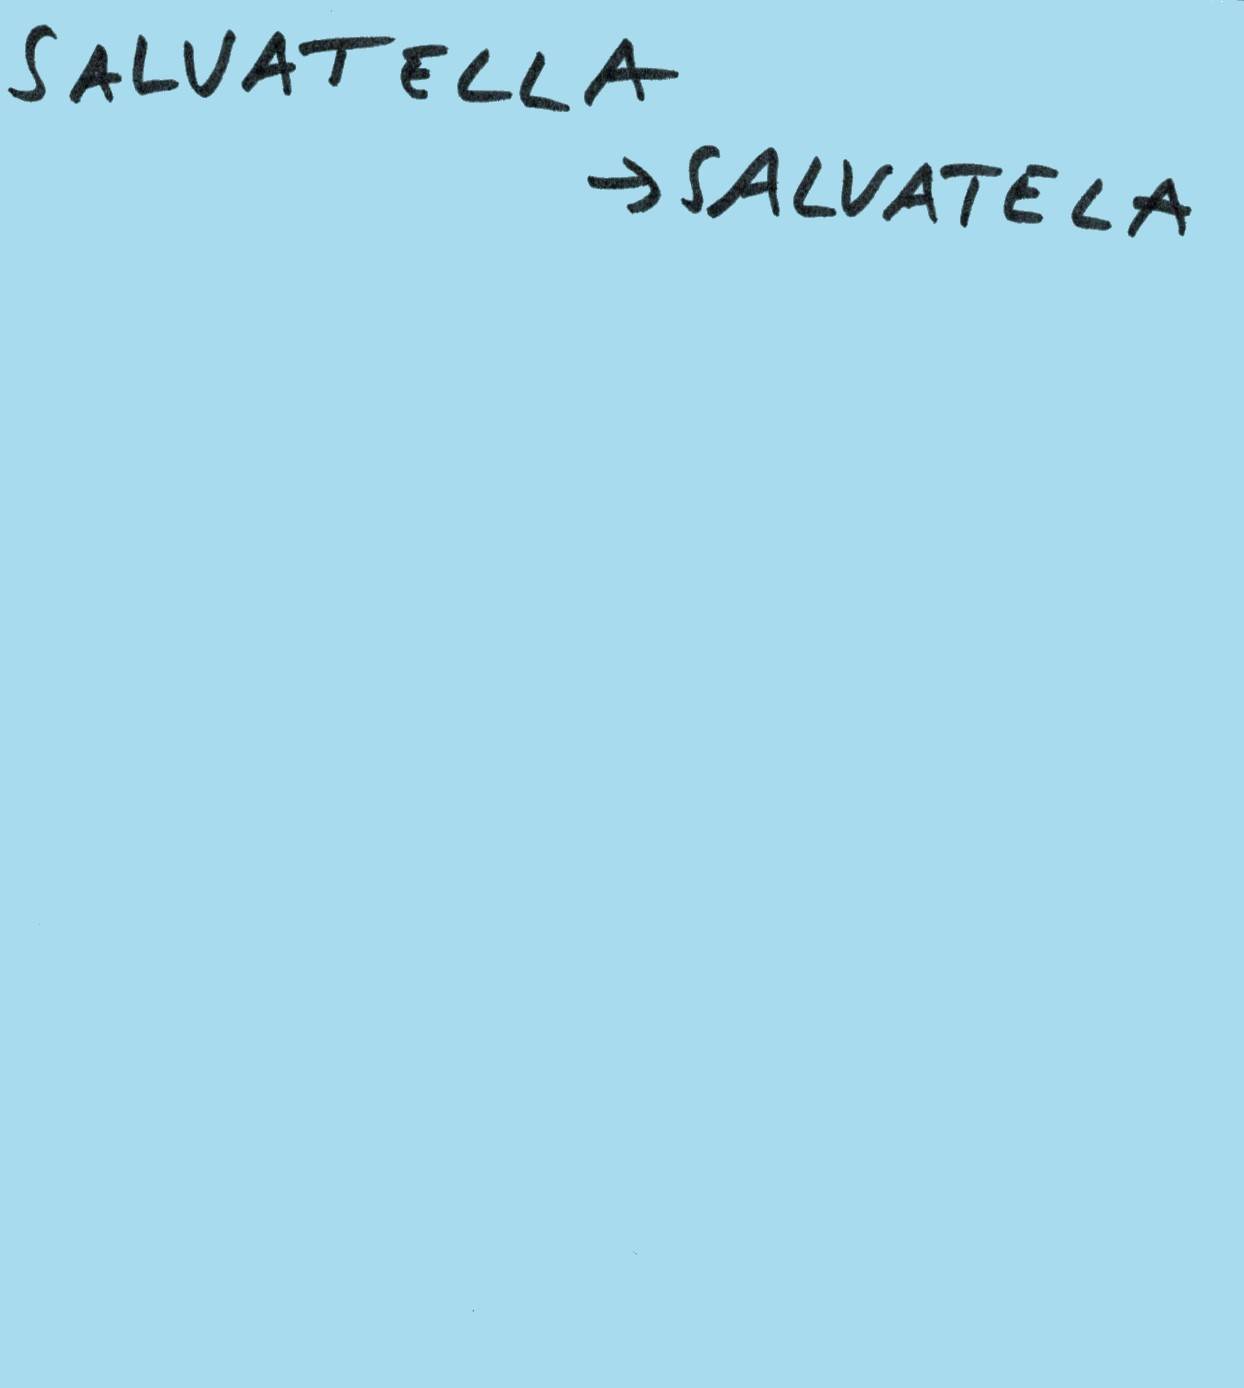 SALVATELLA
→SALVATELA